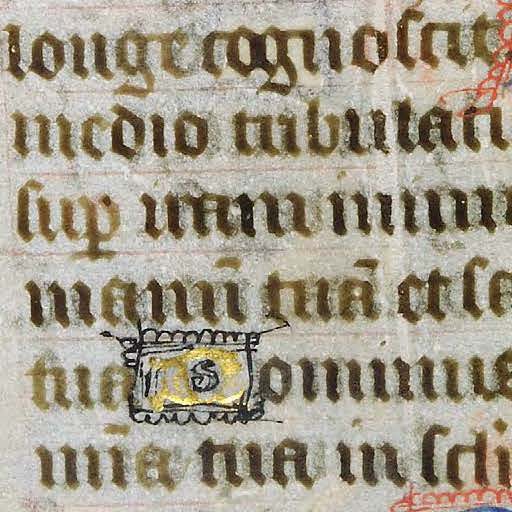 longe cognoscit
medio tribulati
sup iram inimi
manū tuā et se
tua S ominus
mīa tua in scli